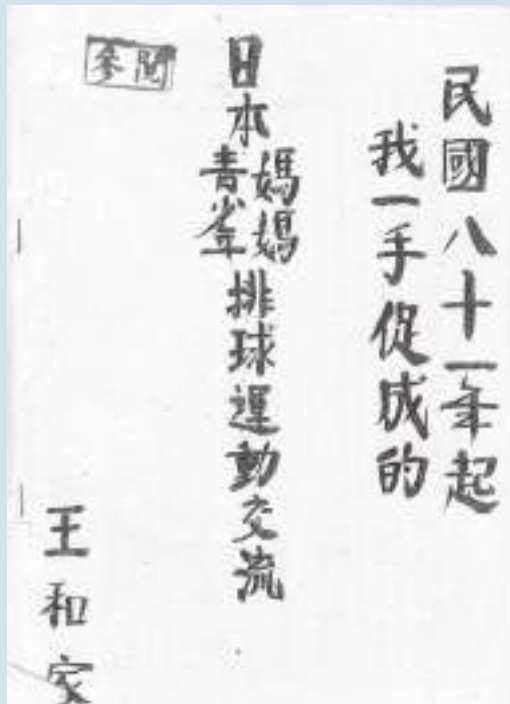 民國八十一年起
我一手促成的
日本媽媽青少年排球運動交流
參閱
王和家